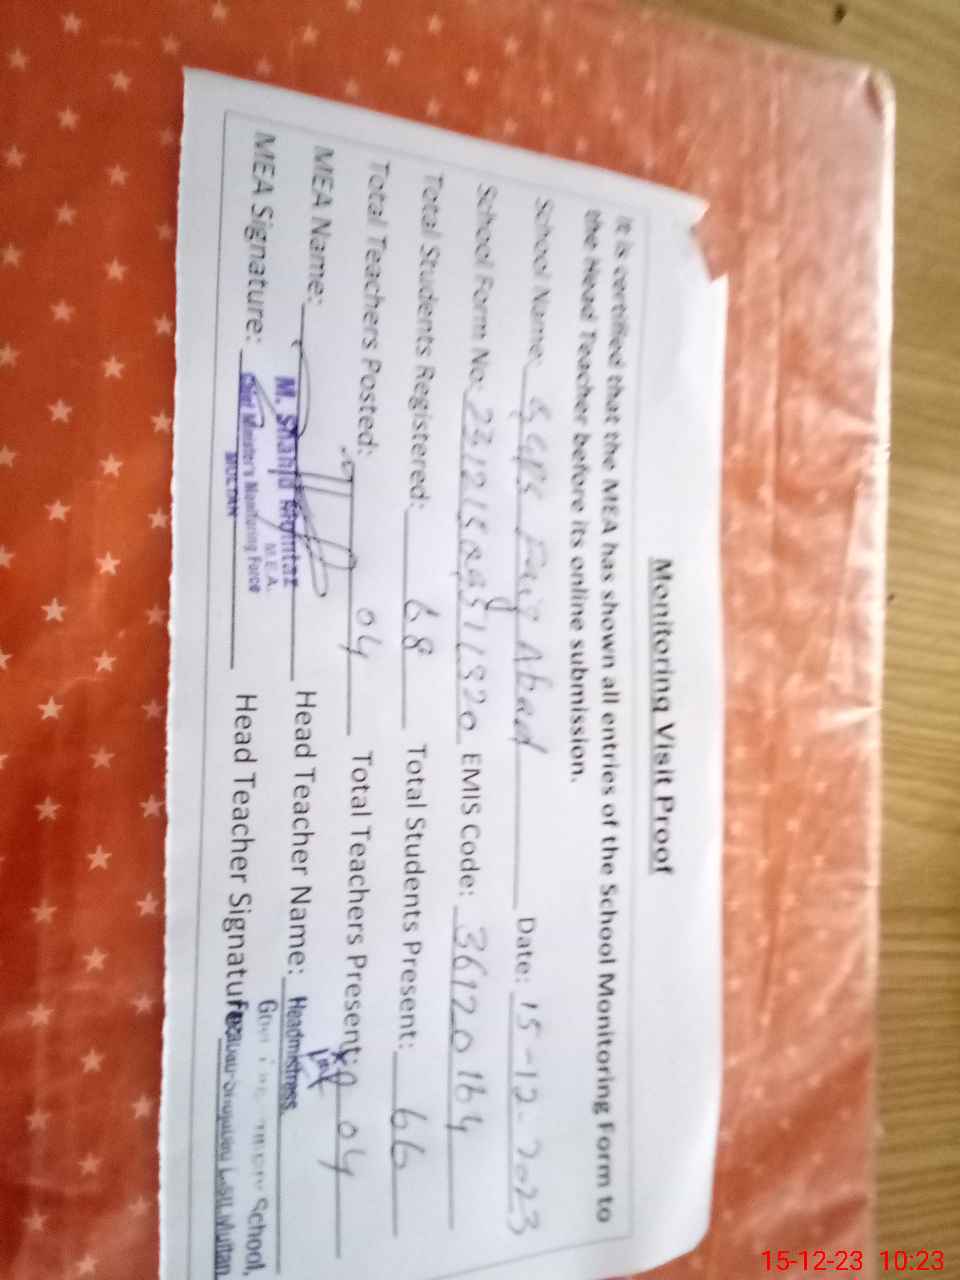 Monitoring Visit Proof
It is certified that the MEA has shown all entries of the School Monitoring Form to
the Head Teacher before its online submission.
School Name: GGPS Faiz Abad Date: 15-12-2023
School Form No: EMIS Code: 36120164
Total Students Registered: 68 Total Students Present: 66
Total Teachers Posted: 04 Total Teachers Present: 04
MEA Name: Head Teacher Name: Headmistress
M. Mumtaz
M.E.A.
MEA Signature: Chief Minister's Monitoring Force Head Teacher Signature:
MULTAN
School,
Multan
15-12-23 10:23